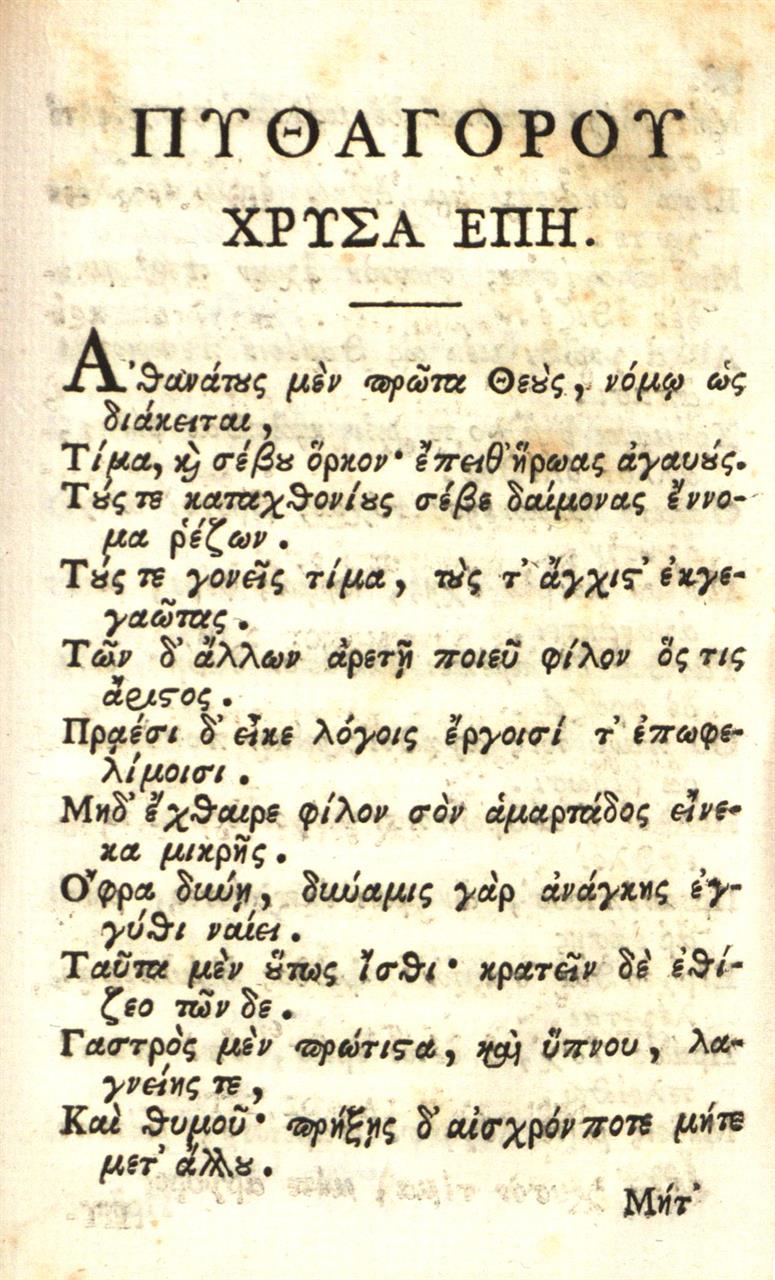 ΠΥΘΑΓΟΡΟΥ
ΧΡΥΣΑ ΕΠΗ.
Ἀθανάτȣς μὲν πρῶτα Θεȣ̀ς, νόμῳ ὡς
διάκειται,
Τίμα, ϗ̀ σέβȣ ὅρκον· ἔπειθ' ἥρωας ἀγαυȣ́ς.
Τȣ́ς τε καταχθονίȣς σέβε δαίμονας ἔννο-
μα ῥέζων.
Τȣ́ς τε γονεῖς τίμα, τȣ̀ς τ' ἄγχιϛ' ἐκγε-
γαῶτας.
Τῶν δ' ἄλλων ἀρετῇ ποιεῦ φίλον ὅς τις
ἄριϛος.
Πραέσι δ' εἶκε λόγοις ἔργοισί τ' ἐπωφε-
λίμοισι.
Μηδ' ἔχθαιρε φίλον σὸν ἁμαρτάδος εἵνε-
κα μικρῆς.
Ὄφρα δύνῃ, δύναμις γὰρ ἀνάγκης ἐγ-
γύθι ναίει.
Ταῦτα μὲν ȣ̔́τως ἴσθι· κρατεῖν δὲ ἐθί-
ζεο τῶν δε.
Γαστρὸς μὲν πρώτιϛα, καὶ ὕπνου, λα-
γνείης τε,
Καὶ θυμοῦ· πρήξῃς δ' αἰσχρόν ποτε μήτε
μετ' ἄλλȣ.
Μήτ'